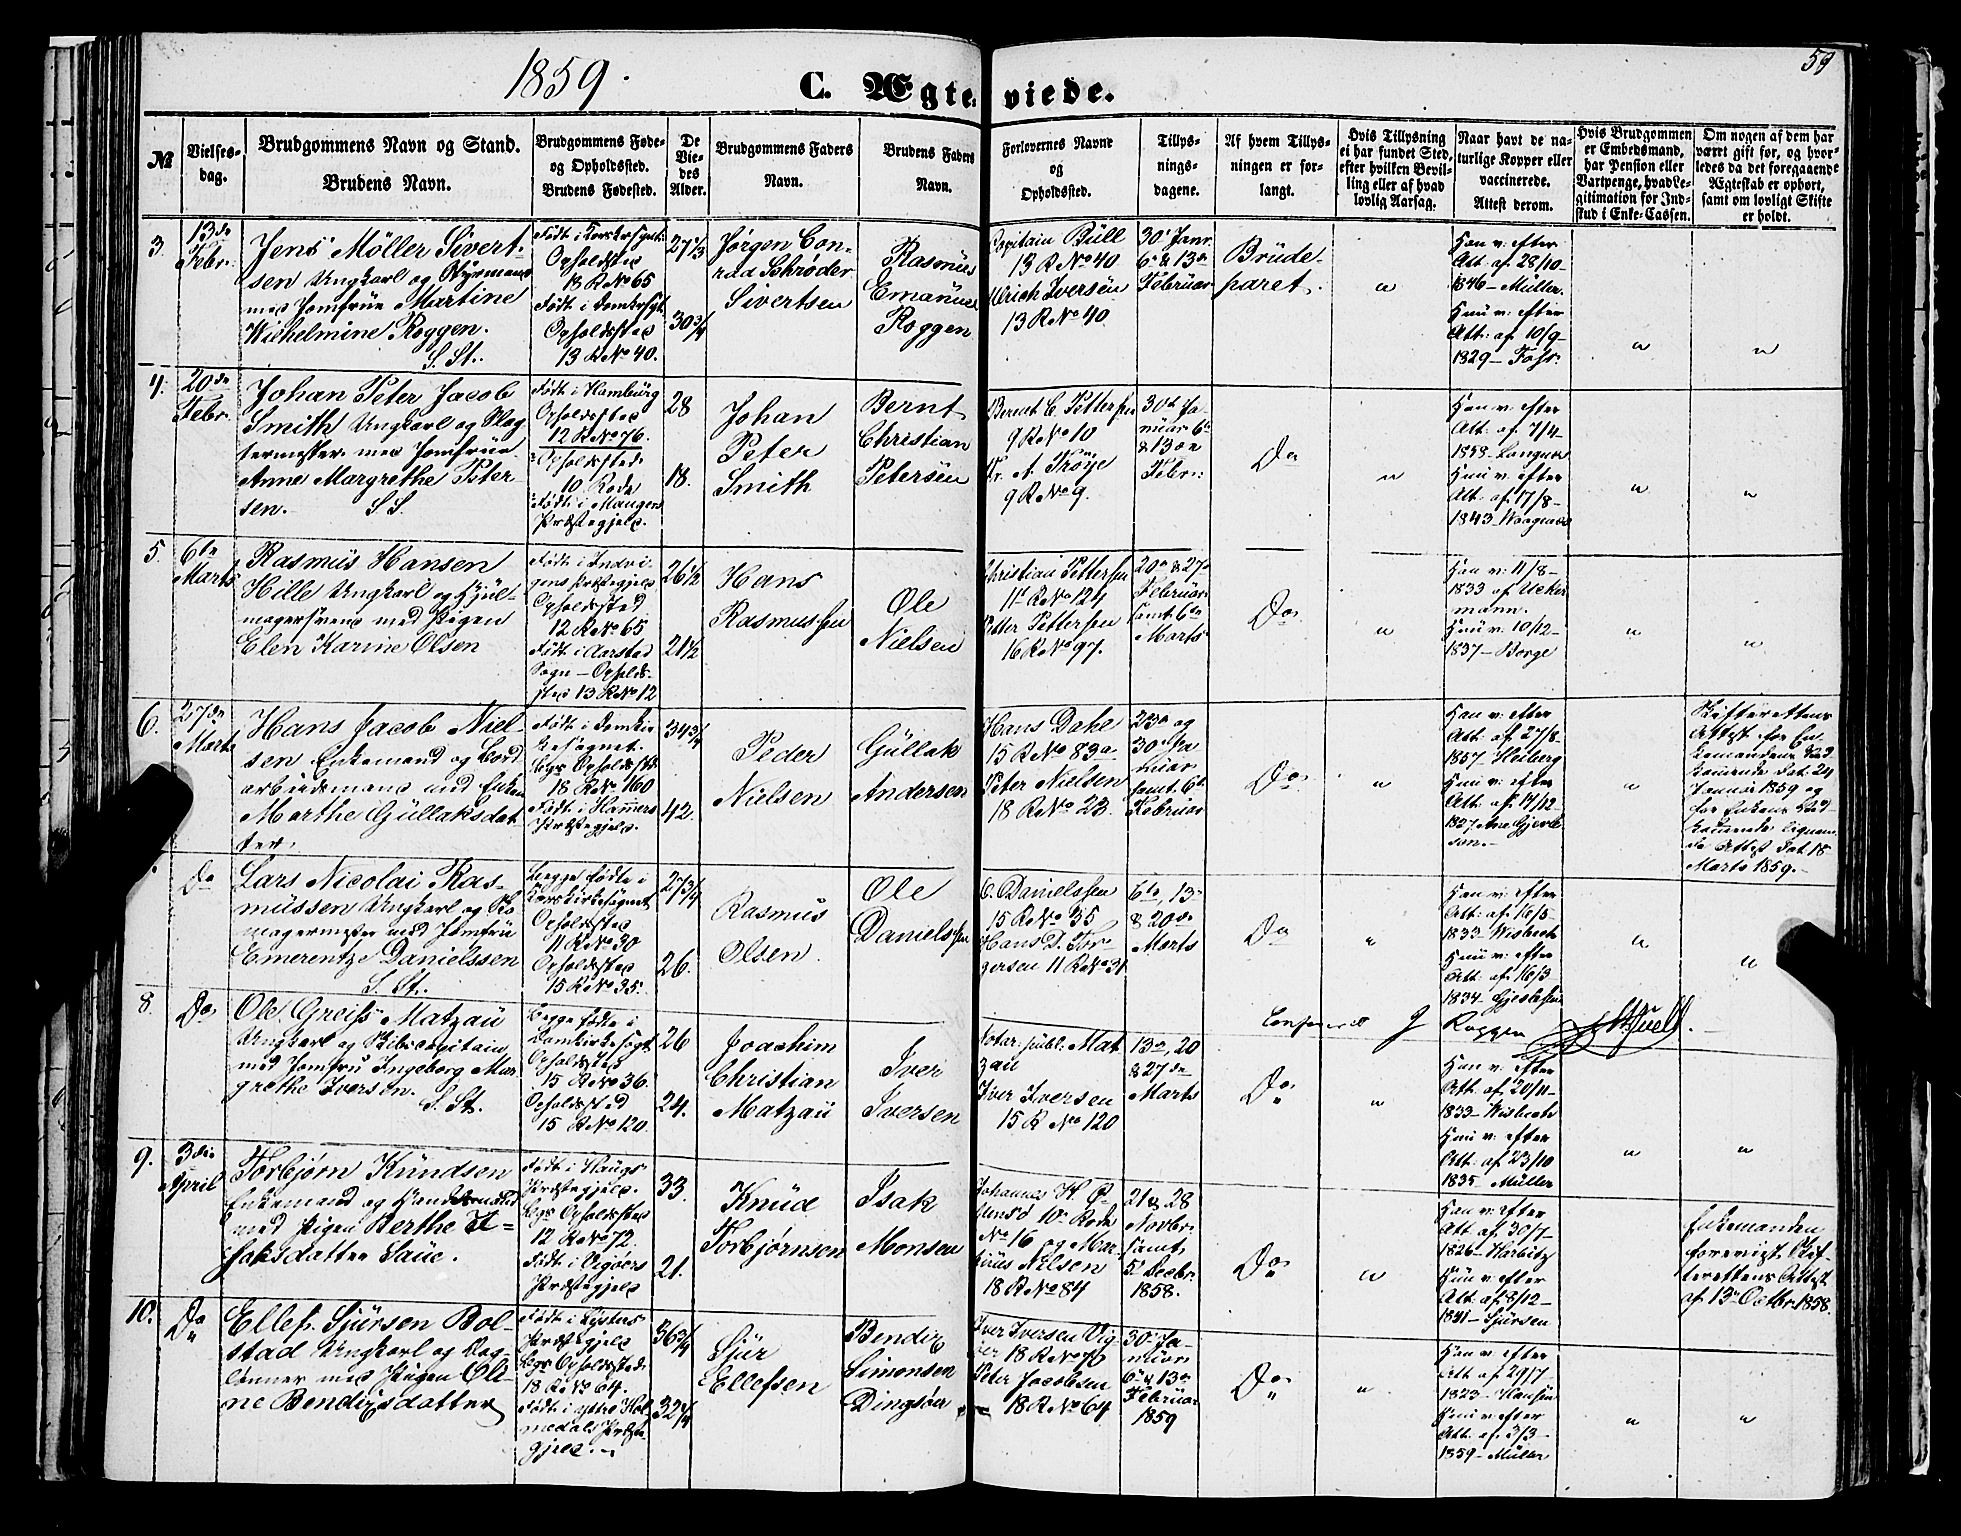 1859.
C. Ægteviede.
59
№
Vielses-
dag.
Brudgommens Navn og Stand.
Brudens Navn.
Brudgommens Føde-
og Opholdssted.
Brudens Fødested.
De
Vie-
des
Alder.
Brudgommens Faders
Navn.
Brudens Faders
Navn.
Forlovernes Navne
og
Opholdssted.
Tillys-
nings-
dagene.
Af hvem Tillys-
ningen er for-
langt.
Hvis Tillysning
ei har fundet Sted,
efter hvilken Bevil-
ling eller af hvad
lovlig Aarsag.
Naar havt de na-
turlige Kopper eller
vaccinerede.
Attest derom.
Hvis Brudgommen
er Embedsmand,
har Pension eller
Vartpenge, hvad Le-
gitimation for Ind-
skud i Enke-Cassen.
Om nogen af dem har
været gift før, og hvor-
ledes da det foregaaende
Ægteskab er ophørt,
samt om lovligt Skifte
er holdt.
3.
13de
Febr.
Jens Møller Sivert-
sen Ungkarl og Styrmand
med Jomfrue Martine
Wilhelmine Roggen.
S. St.
Født i Korskirkesognet
Opholdssted
18 R No 65
Født i Domkirkesogt
Opholdssted
13 R No 40.
27 1/3
30 3/4
Jørgen Con-
rad Schrøder
Sivertsen
Rasmus
Emanuel
Roggen
Capitain Büll
13 R No 40
Ulrich Iversen
13 R No 40
30' Janr.
6te & 13de
Februar
Brude-
paret.
"
Han v: efter
Att: af 28/10-
1846- Müller.
Hun v: efter
Att: af 10/9-
1829-
"
"
4.
20de
Febr.
Johan Peter Jacob
Smith Ungkarl og Slag-
termester med Jomfrue
Anne Margrethe Peter-
sen. S. S.
Født i Hamburg
Opholdssted
12 R No 76.
Opholdssted
10 Rode
Født i Manger
Præstegjeld.
28
18.
Johan
Peter
Smith
Bernt
Christian
Petersen
Bernt C. Pettersen
9 R No 10
Fr. A. Trøye
9 R No 9.
30te Ja-
nuar 6te
& 13de
Febr:
Do
"
Han v: efter
Att: af 7/4-
1858-
Hun v: efter
Att: af 17/8-
1843-
"
"
5.
6te
Marts
Rasmus Hansen
Hille Ungkarl og Hjul-
magersvend med Pigen
Elen Karine Olsen
Født i Indvi-
gens Præstegjeld
Opholdssted
12 R No 65
Født i Aarstad
Sogn - Opholds-
sted 13 R No 12
26 1/2
21 1/2
Hans
Rasmussen
Ole
Nielsen
Christian Pettersen
11 R No 124
Petter Pettersen
16 R No 97.
20de & 27de
Februar
samt 6te
Marts
Do
"
Han v: 11/8-
1833 af Ucker-
mann.
Hun v: 10/12-
1837- Berge
"
"
6.
27de
Marts
Hans Jacob Niel-
sen Enkemand og Bord-
arbeidsmand med Enken
Marthe Gullaksdat-
ter.
Født i Domkir-
kesognet.
Begs Opholdssted
18 R No 160
Født i Hammers
Præstegjeld.
34 3/4
42.
Peder
Nielsen
Gullak
Andersen
Hans Dahl
15 R No 83a
Peter Nielsen
18 R No 23.
23de og
30' Ja-
nuar
samt 6te
Februar
Do
"
Han v: efter
Att: af 27/8-
1857 Heiberg
Hun v: efter
Att: af 14/12-
1827
"
Skifterettens
Attest for En-
kemanden ved-
kommende Dat. 24
Januar 1859 og
for Enken ved-
kommende lignen-
de Attest Dat. 18
Marts 1859.-
Do
Lars Nicolai Ras-
mussen Ungkarl og Sko-
magermester med Jomfru
Emerentze Danielssen
S. St.
Begge fødte i
Korskirkesognet
Opholdssted
11 R No 30
Opholdssted
15 R No 35.
27 3/4
26.
Rasmus
Olsen.
Ole
Danielssen
C. Danielssen
15 R No 35
Hans D. Tor-
gersen 11 R No 31
6te, 13de
& 20de
Marts
Do
"
Han v: efter
Att: af 16/5-
1833- Wisbech
Hun v: efter
Att: af 16/3
1834-
"
"
8.
Do
Ole Greiss Matzau
Ungkarl og Skibscapitain
med Jomfru Ingeborg Mar-
grethe Iversen.
S. St.
Begge fødte i
Domkirkesogt
Opholdssted
15 R No 36.
Opholdssted
15 R No 120.
26
24.
Joachim
Christian
Matzau
Iver
Iversen
Notar: publ: Mat-
zau
Iver Iversen
15 R No 120
13de, 20
& 27de
Marts
Do
"
Han v: efter
Att: af 20/11-
1833- Wisbech
Hun v: efter
Att: af 23/10
1835. Müller
"
"
9.
3die
April
Torbjørn Knudsen
Enkemand og Handelsmand
med Pigen Berthe I-
saksdatter Saue.
Født i Haugs
Præstegjeld.
Begs Opholdssted
12 R No 72.
Født i Vigøers
Præstegjeld
33.
21.
Knud
Torbjørnsen
Isak
Monsen
10' Rode
No 16 og Mar-
kus Nilsen
18 R No 84
21 & 28
Novbr.
samt
5' Decbr.
1858.
Do
"
Han v: efter
Att: af 30/7-
1826- Harbitz
Hun v: efter
Att: af 8/12-
1841- Sjursen
Enkemanden
foreviist Skif-
terettens Attest
af 13' Octbr. 1858.
10.
Do
Ellef Sjursen Bol-
stad Ungkarl og Dag-
lønner med Pigen Oli-
ne Bendixsdatter
Født i Lysters
Præstegjeld
Begs Opholdssted
18 R No 64.
Født i yttre Hol-
medals Præste-
gjeld.
36 3/4
32 1/4
Sjur
Ellefsen
Bendix
Simonsen
Dingsøer
Iver Iversen Vig-
18 R No 70
Peter Jacobsen
18 R No 64
30' Ja-
nuar
6te & 13de
Februar
1859
Do
"
Han v: efter
Att: af 29/7-
1823- Hansen
Hun v: efter
Att: af 3/3-
1859- Müller
"
"